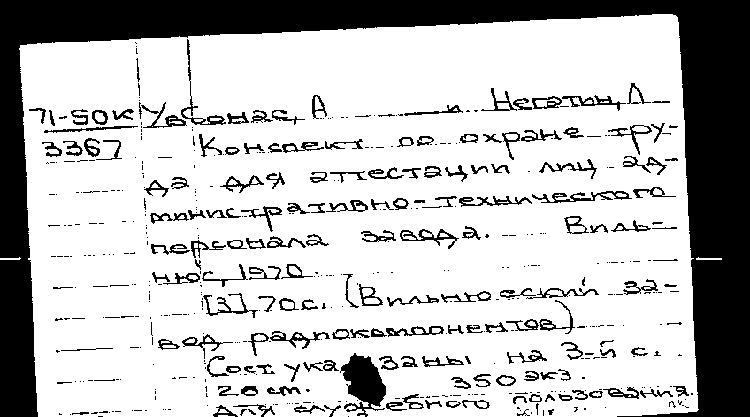 71-50к Урбонас, А и Негатин, Л
3367 Конспект по охране тру-
да для аттестации лиц ад-
министративно-технического
персонала завода. Виль-
нюс, 1970.
[3], 70с. (Вильнюсский за-
вод радиокомпонентов)
Сост. указаны на 3-й с.
20 cm. 350 экз.
Для служебного пользования.